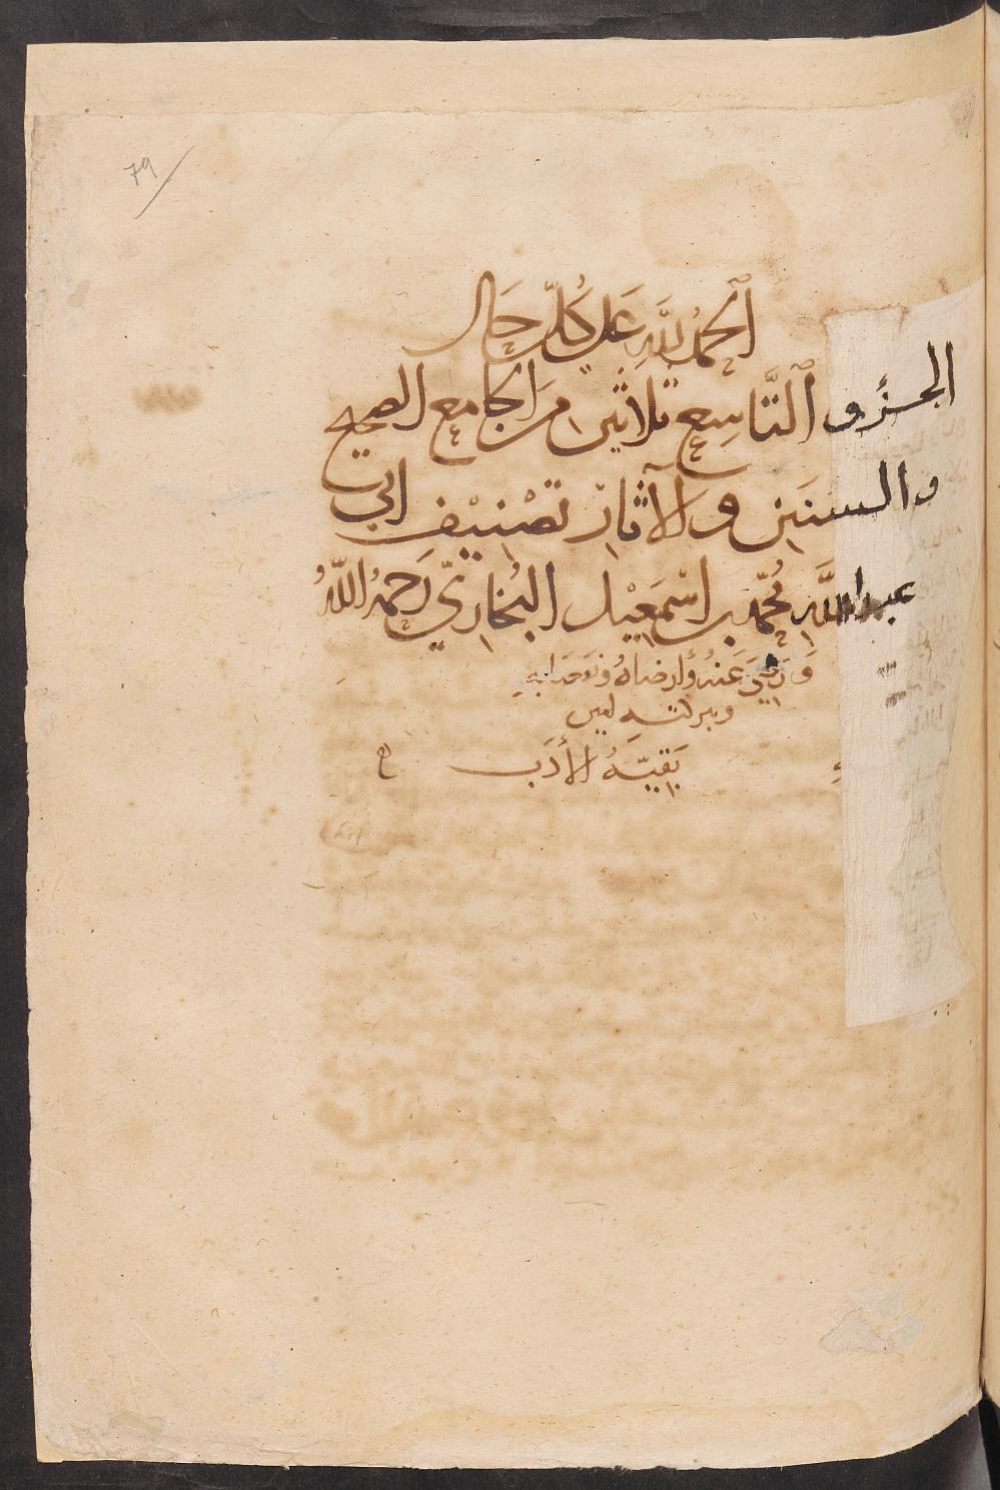 79
الحمد لله على كل حال
الجزؤ التاسع ثلاثين من الجامع الصحيح
والسنين والآثار تصنيف ابي
عبد الله محمد بن اسمعيل البخاري رحمه الله
ورضي عنه وارضاه ونفعنا به
وببركته امين
بقية الأدب